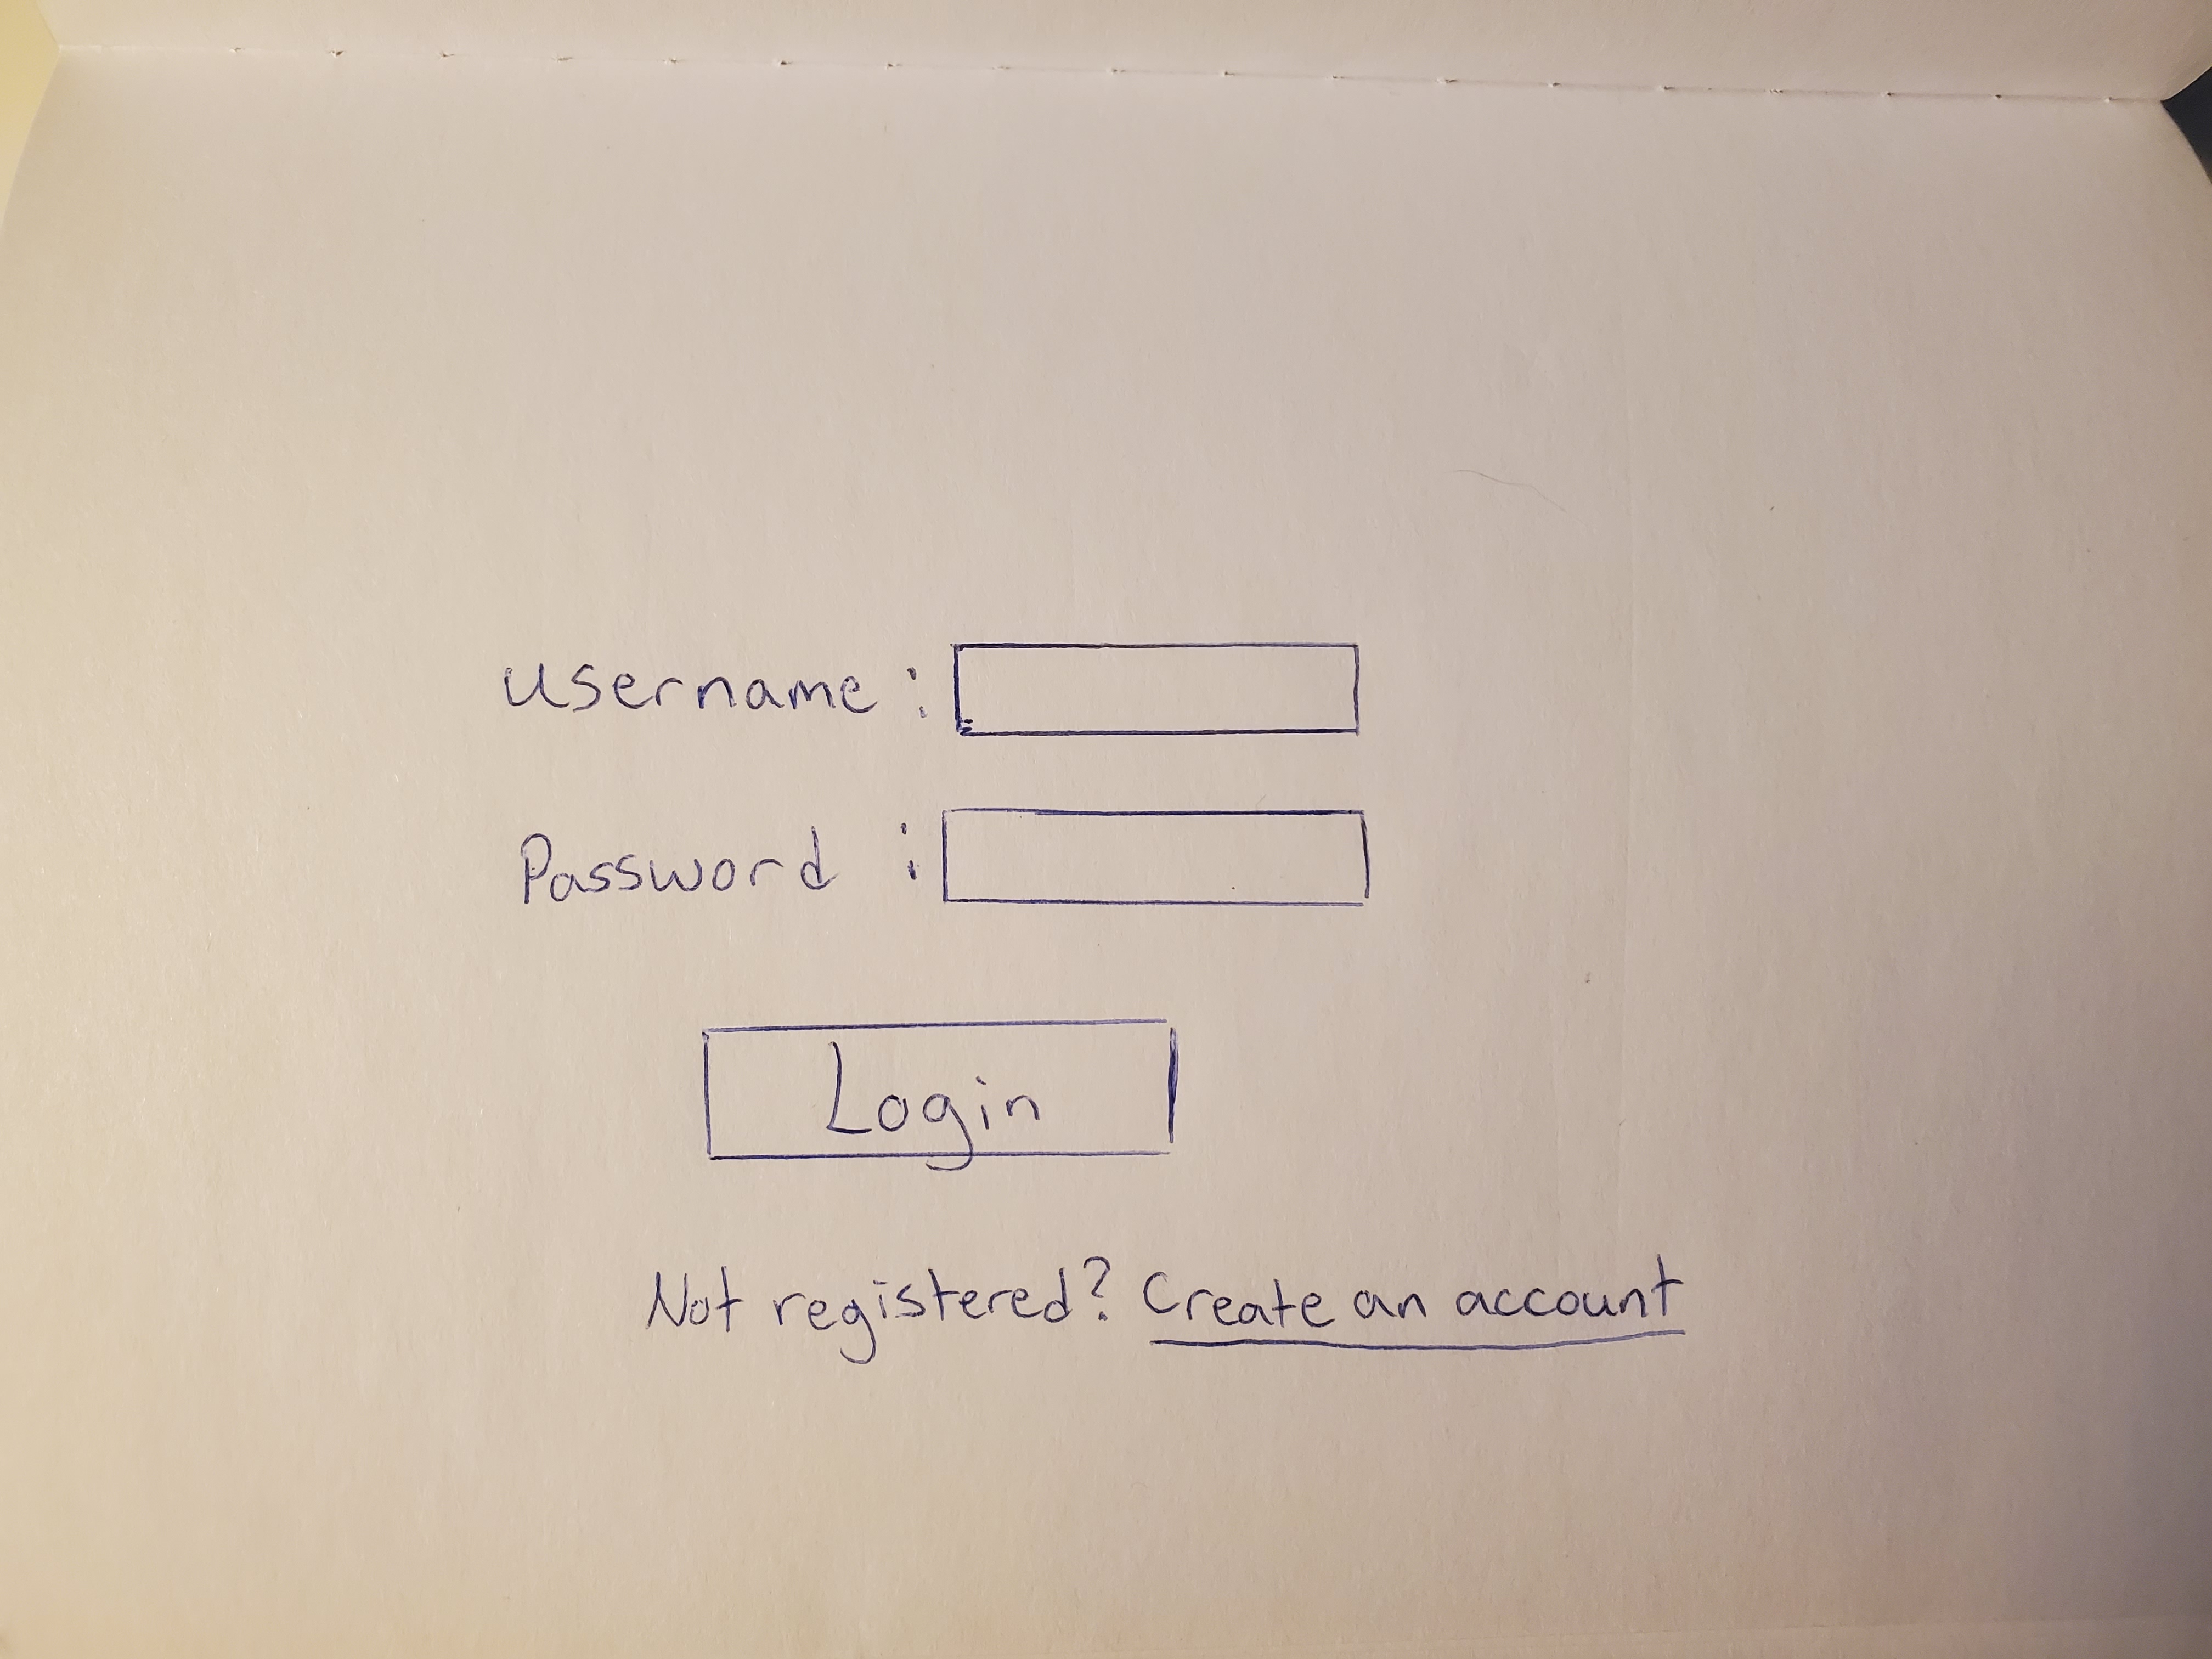 Username :
Password :
Login
Not registered? Create an account